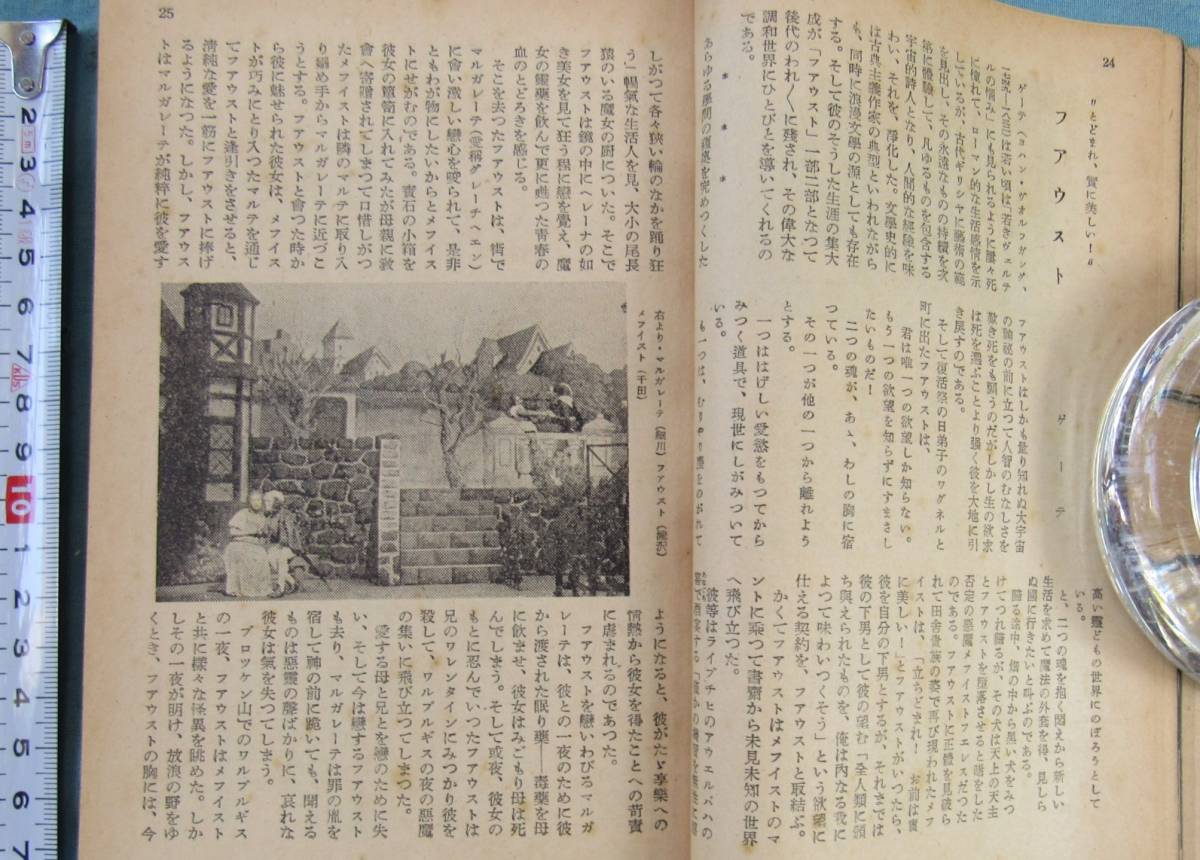 24
"とどまれ、實に美しい!"
フアウスト
ゲーテ
ゲーテ(ヨハン・ヴオルフガング、
は若い頃は「若きヴエルテ
ルの悩み」にも見られるように屢々死
に憧れて、ローマン的な生活感情を示
しているが、古代ギリシヤに藝術の範
を見出し、その永遠なものの特質を次
第に體驗して、凡ゆるものを包含する
宇宙的詩人となり、人間的な經驗を味
わい、それを、淨化した。文學史的に
は古典主義作家の典型といわれながら
も、同時に浪漫文學の源としても存在
する。そして彼のそうした生涯の集大
成が「フアウスト」一部二部となつて
後代のわれ〱に殘され、その偉大な
調和世界にひとびとを導いてくれるの
である。
* * *
あらゆる學問の蘊奧を究めつくした
フアウストはしかも量り知れぬ大宇宙
の神祕の前に立つて人智のむなしさを
歎き死をも願うのだがしかし生の欲求
は死を選ぶことより强く彼を大地に引
き戾すのである。
そして復活祭の日弟子のワグネルと
町に出たフアウストは、
君は唯一つの欲望しか知らない。
もう一つの欲望を知らずにすまさし
たいものだ!
二つの魂が、あゝ、わしの胸に宿
つている。
その一つが他の一つから離れよう
とする。
一つははげしい愛慾をもつてから
みつく道具で、現世にしがみついて
いる。
も一つは、むりやり塵をのがれて
高い靈どもの世界にのぼろうとして
いる。
と、二つの魂を抱く悶えから新しい
生活を求めて魔法の外套を得、見しら
ぬ國に行きたいと叫ぶのである。
歸る途中、畑の中から黑い犬をみつ
けてつれ歸るが、その犬は天上の天主
とフアウストを墮落させると賭をした
否定の惡魔メフイストフエレスだつた
のである。フアウストに正體を見破ら
れて田舍貴族の姿で再び現われたメフ
イストは、「立ちどまれ! お前は實
に美しい!」とフアウストがいつたら、
彼を自分の下男とするが、それまでは
彼の下男として彼の望む「全人類に頒
ち與えられたものを、俺は內なる我に
よつて味わいつくそう」という欲望に
仕える契約を、フアウストと取結ぶ。
かくてフアウストはメフイストのマ
ントに乘つて書齋から未見未知の世界
へ飛び立つた。
彼等はライプチヒのアウエルバハの
25
しがつて各々狹い輪のなかを踊り狂
う」暢氣な生活人を見、大小の尾長
猿のいる魔女の厨についた。そこで
フアウストは鏡の中にヘレーナの如
き美女を見て狂う程に戀を覺え、魔
女の靈藥を飮んで更に甦つた靑春の
血のとどろきを感じる。
そこを去つたフアウストは、街で
マルガレーテ(愛稱グレーチヘエン)
に會い激しい戀心を唆られて、是非
ともわが物にしたいからとメフイス
トにせがむのである。寶石の小箱を
彼女の簞笥に入れてみたが母親に敎
會へ寄贈されてしまつて口惜しがつ
たメフイストは隣のマルテに取り入
り搦め手からマルガレーテに近づこ
うとする。フアウストと會つた時か
ら彼に魅せられた彼女は、メフイス
トが巧みにとり入つたマルテを通じ
てフアウストと逢引きをさせると、
淸純な愛を一筋にフアウストに捧げ
るようになつた。しかし、フアウス
トはマルガレーテが純粹に彼を愛す
右より・マルガレーテ(細川)フアウスト(瀧沢)
メフイスト(千田)
ようになると、彼がたゞ享樂への
情熱から彼女を得たことへの苛責
に虐まれるのであつた。
フアウストを戀いわびるマルガ
レーテは、彼との一夜のために彼
から渡された眠り藥——毒藥を母
に飮ませ、彼女はみごもり母は死
もとに忍んでいつたフアウストは
に飮ませ、彼女の
兄のワレンタインにみつかり彼を
殺して、ワルブルギスの夜の惡魔
の集いに飛び立つてしまつた。
愛する母と兄とを戀のために失
い、そして今は戀するフアウスト
も去り、マルガレーテは罪の胤を
宿して神の前に跪いても、聞える
ものは惡靈の聲ばかりに、哀れな
彼女は氣を失つてしまう。
ブロツケン山でのワルブルギス
の一夜、フアウストはメフイスト
と共に樣々な怪異を眺めた。しか
しその一夜が明け、放浪の野をゆ
くとき、フアウストの胸には、今